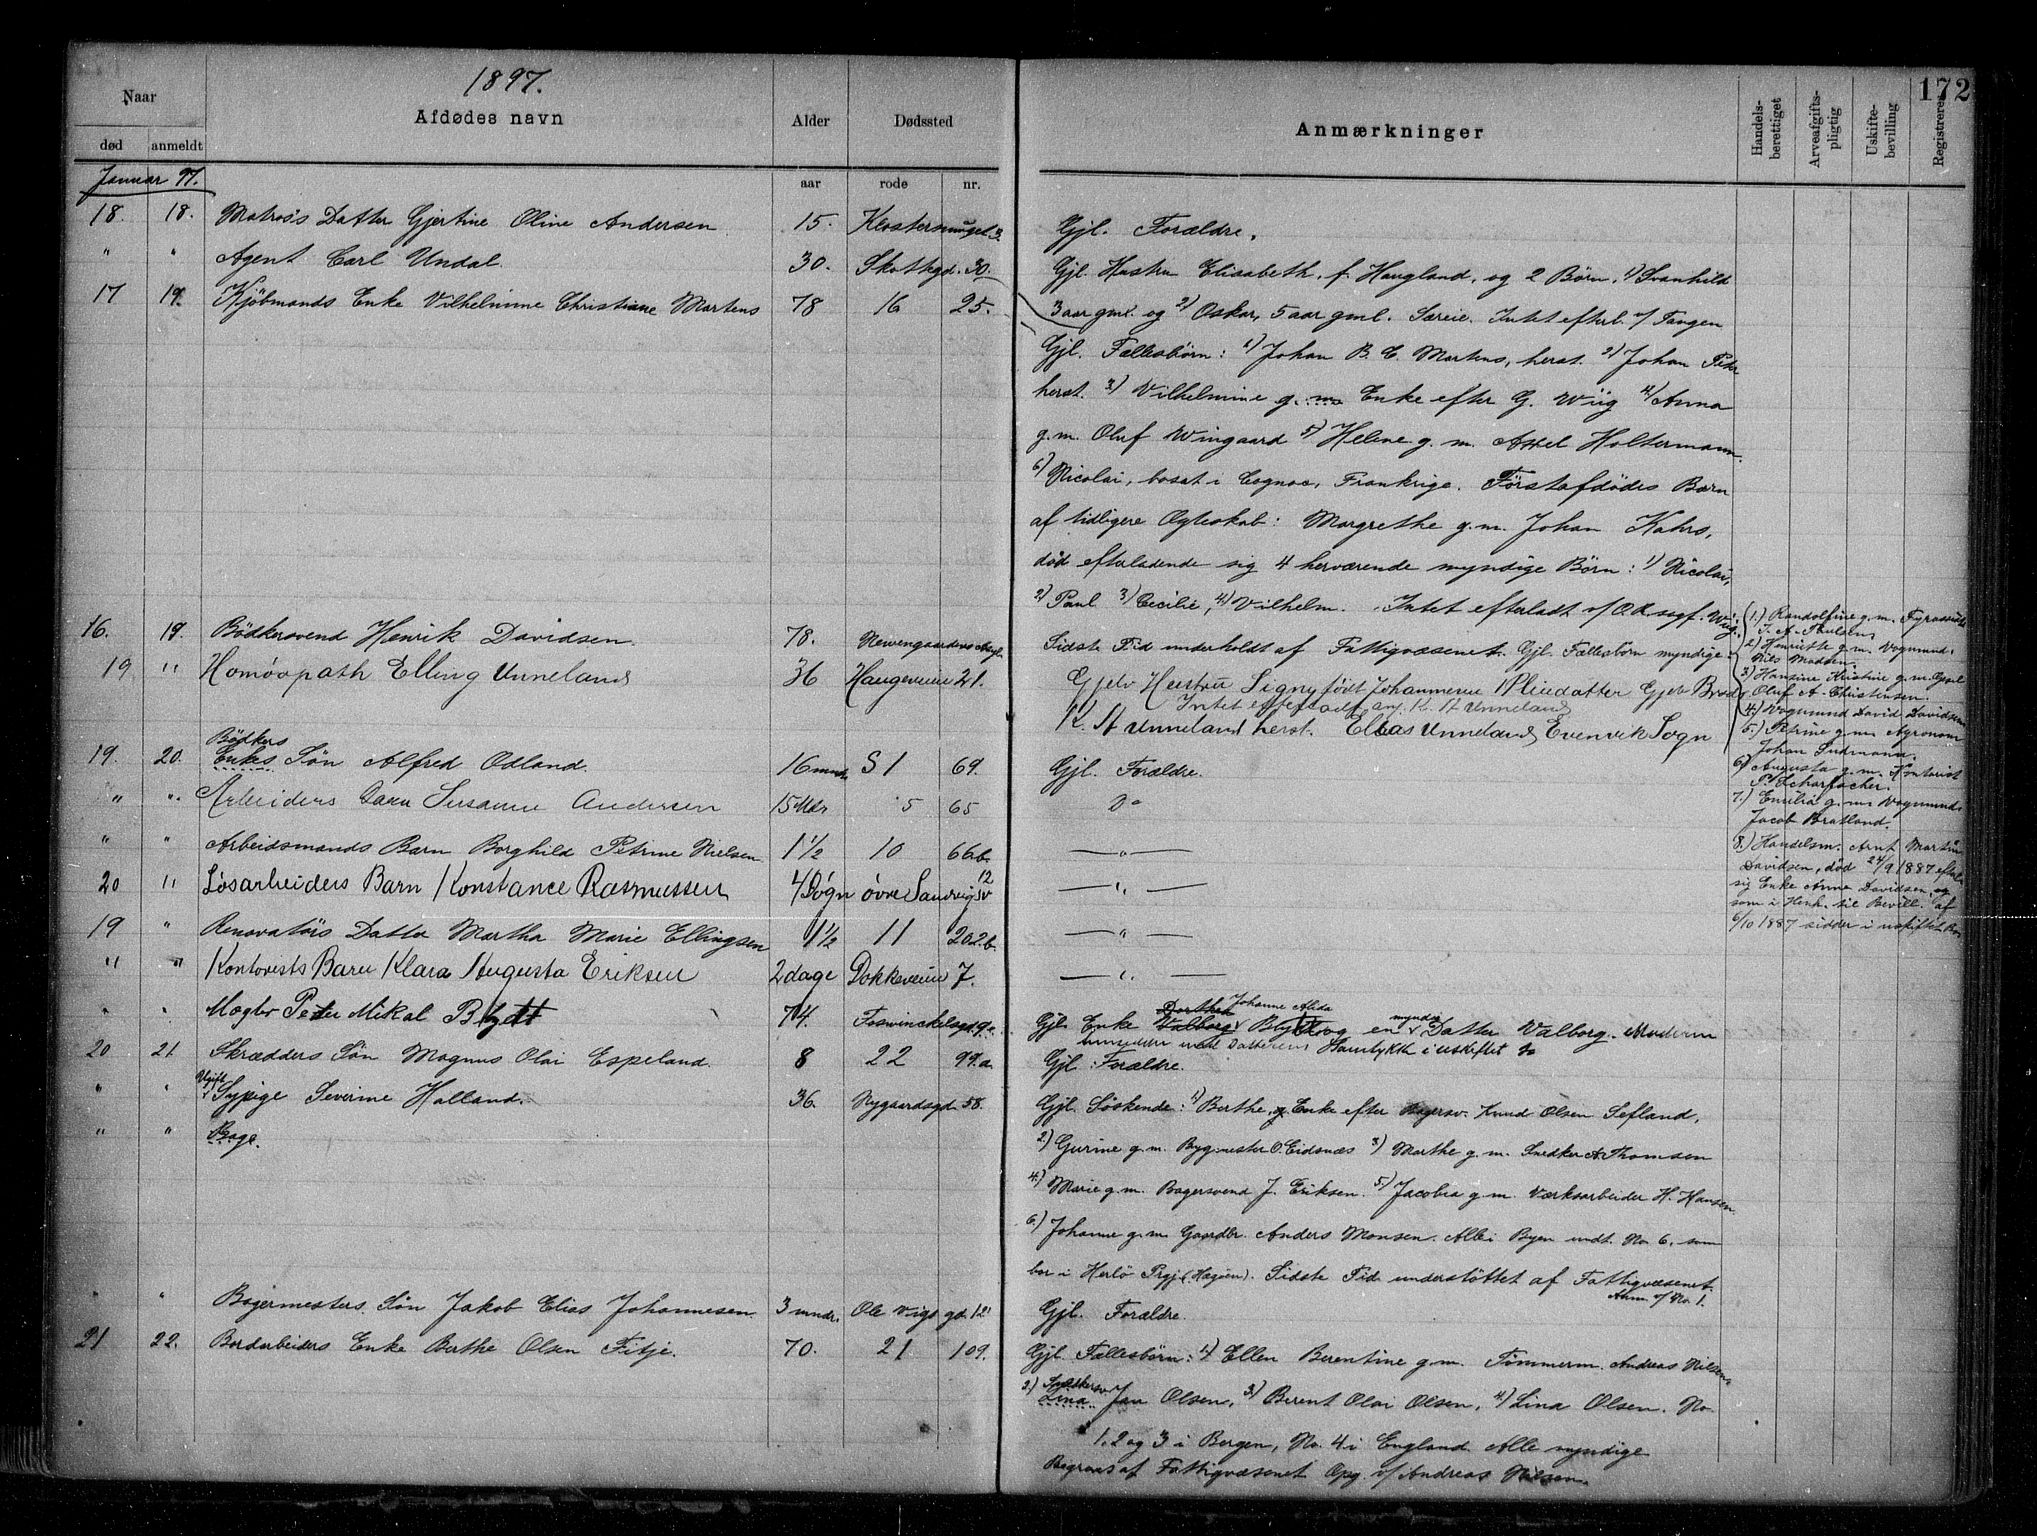 1897.
172
Naar
død
anmeldt
Afdødes navn
Alder
aar
Dødssted
rode
nr.
Anmærkninger
Handels-berettiget
Arveafgifts-pligtig
Uskifte-bevilling
Registreret
Januar 97.
18. 18. Matros's Datter Gjertine Oline Andersen 15. Klostersmuget 3. Gjl. Forældre.
" " Agent Carl Undal. 30. Skottegd. 30. Gjl. Hustru Elisabeth, f. Haugland, og 2 Børn, 1) Svanhild
3 aar gml. og 2) Oskar, 5 aar gml. Særeie. Intet efterl. v/ Tangen
17 19. Kjøbmands Enke Vilhelmine Christiane Martens 78 16 25.
Gjl. Fællesbørn: 1) Johan B. C. Martens, herst. 2) Johan Peter
herst. 3) Vilhelmine g. m. Enke efter G. Wiig 4) Anna
g. m. Oluf Wingaard 5) Helene g. m. Axel Holtermann.
6) Nicolai, bosat i Cognac, Frankrige. Førstafdødes Barn
af tidligere Ægteskab: Margrethe g. m. Johan Kahrs,
død efterladende sig 4 herværende myndige Børn: 1) Nicolai,
2) Paul 3) Cecilie, 4) Vilhelm. Intet efterladt v/ O.R.sagf. Wiig.
16. 19. Bødkersvend Henrik Davidsen. 78. Sidste Tid underholdt af Fattigvæsenet. Gjl. Fællesbørn myndige:
1.) Randolfine g. m. Fyrassist.
J. A. Paulsen
2) Henriette g. m. Vognmd.
Nils Madsen.
3) Hansine Kristine g. m.
Oluf A. Christensen.
4.) Vognmand David Davidsen
5.) Petrine g. m. Agronom
Johan Sudmann.
6) Augusta g. m. Kontorist
P. Scharfacher.
7.) Emilia g. m. Vognmand
Jacob Bratland.
8.) Handelsm. Arnt Martin
Davidsen, død 24/9 1887 efterl.
sig Enke Anna Davidsen, og
som i Henh. til Bevill. af
6/10 1887 sidder i uskiftet Bo
19 " Homøopath Elling Unneland 36 Haugeveien 21. Gjelv Hustru Signy født Johannesen Gjelv Brødre
Intet efterladt anm. K. A Unneland
K. A Unneland herst. Elias Unneland Evenvik Sogn
19. 20. Bødkers
Enkes Søn Alfred Odland. 16 mndr S 1 69. Gjl. Forældre.
" " Arbeiders Barn Susanne Andersen 15 Mdr 5 65 Do
" " Arbeidsmands Barn Borghild Petrine Nielsen 1½ 10 66b. — " —
20 " Løsarbeiders Barn Konstance Rasmussen 4 Døgn øvre Sandvigsv 12 — " —
19 " Renovatørs Datter Martha Marie Ellingsen 1½ 11 202b. — " —
" " Kontorists Barn Klara Augusta Eriksen 2 dage Dokkeveien 7. — " —
" " Mægler Peter Mikal Blytt 74. Foswinckelsgd 9a. Gjl. Enke Dorthea Valborg Johanne Alida Blytt og en myndig Datter Valborg. Moderen
hensidder med Datterens Samtykke i uskiftet Bo
20 21 Skrædders Søn Magnus Olai Espeland. 8 22 99.a. Gjl. Forældre.
" " Ugift Sypige Severine Halland. 36. Nygaardsgd. 58. Gjl. Søskende: 1) Berthe, Enke efter Bagersv. Knud Olsen Sefland,
" " Bage.
2.) Gurine g. m. Bygmester O. Eidsnæs 3) Marthe g. m. Snedker A. Thomsen
4.) Marie g. m. Bagersvend J. Eriksen. 5) Jacobia g. m. Værksarbeider H. Hansen
6.) Johanne g. m. Gaardbr. Anders Monsen. Alle i Byen undt. No. 6. som
bor i Herlø Prgj. (Hægøen). Sidste Tid understøttet af Fattigvæsenet.
Anm. v/ No. 1.
" " Bagermesters Søn Jakob Elias Johannesen 3 mndr. Ole Vigs gd. 12 Gjl. Forældre.
21 22. Bordarbeiders Enke Berthe Olsen Fitje. 70. 21 109. Gjl. Fællesbørn: 1) Ellen Berentine g. m. Tømmerm. Andreas Nilsen,
2.) Snedkersv. Lina Jan Olsen, 3) Berent Olai Olsen, 4.) Lina Olsen. No.
1. 2 og 3 i Bergen, No. 4 i England. Alle myndige
Begraves af Fattigvæsenet Opg. v/ Andreas Nilsen.